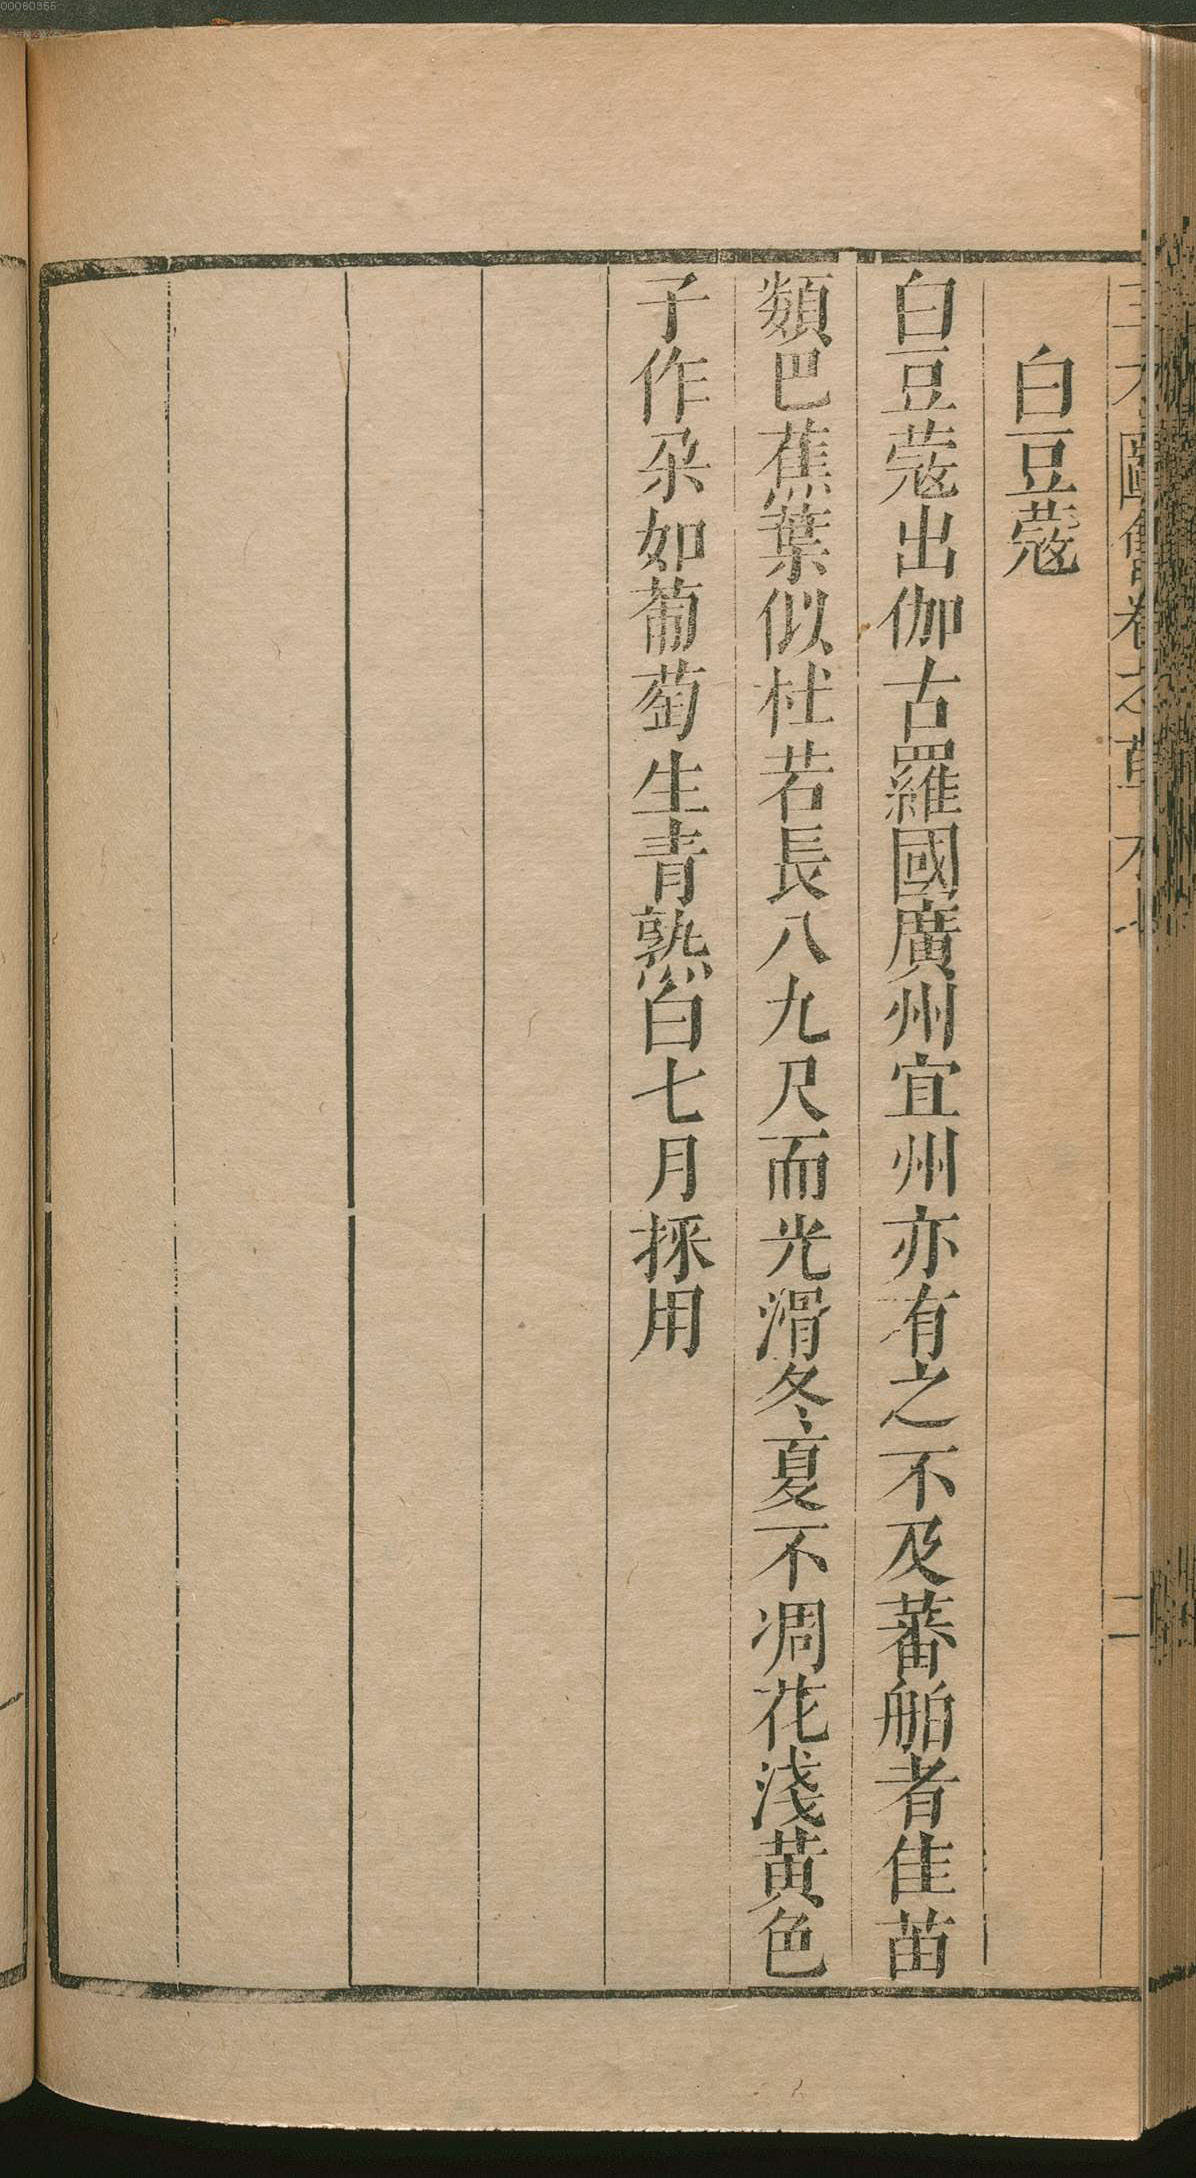 00060355
三才圖會卷之草木七
二
白豆蔻
白豆蔻出伽古羅國廣州宜州亦有之不及蕃舶者佳苗
類巴蕉葉似杜若長八九尺而光滑冬夏不凋花淺黃色
子作朶如葡萄生青熟白七月採用